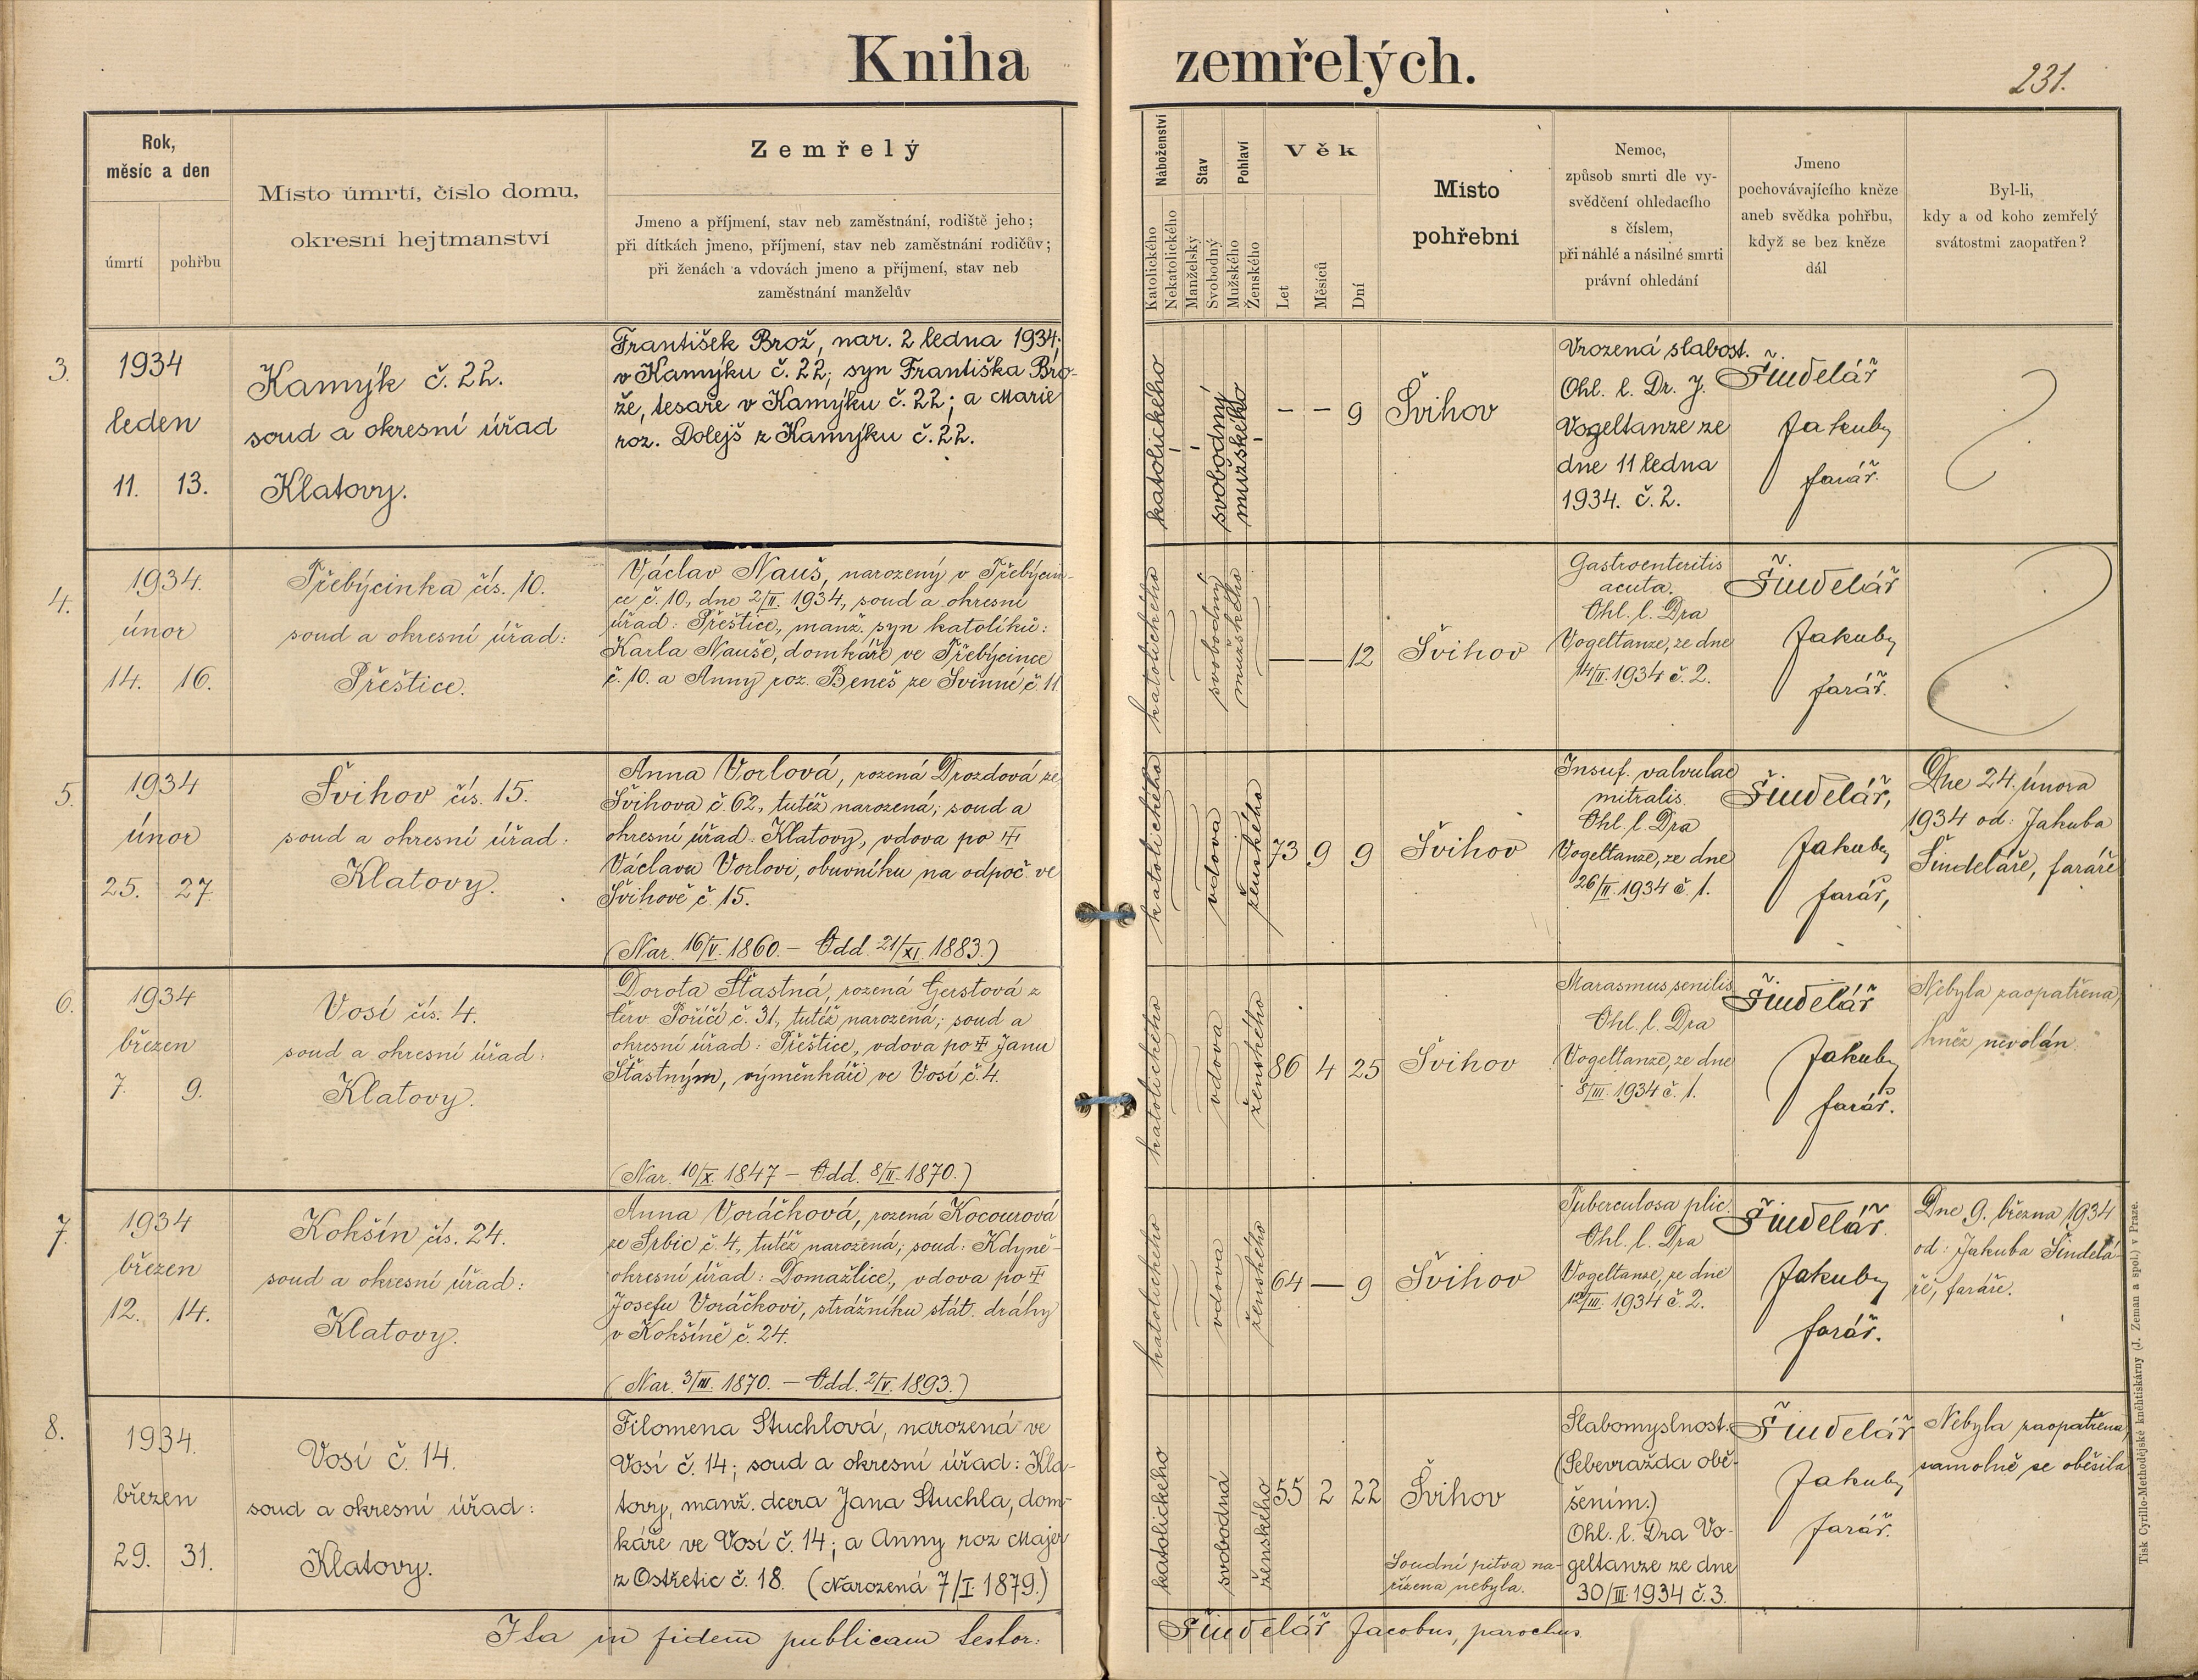 Kniha zemřelých.
231.
Rok,
měsíc a den
úmrtí
pohřbu
Místo úmrtí, číslo domu,
okresní hejtmanství
Zemřelý
Jmeno a příjmení, stav neb zaměstnání, rodiště jeho;
při dítkách jmeno, příjmení, stav neb zaměstnání rodičův;
při ženách a vdovách jmeno a příjmení, stav neb
zaměstnání manželův
Náboženství
Katolického
Nekatolického
Stav
Manželský
Svobodný
Pohlaví
Mužského
Ženského
Věk
Let
Měsíců
Dní
Místo
pohřební
Nemoc,
způsob smrti dle vy-
svědčení ohledacího
s číslem,
při náhlé a násilné smrti
právní ohledání
Jmeno
pochovávajícího kněze
aneb svědka pohřbu,
když se bez kněze
dál
Byl-li,
kdy a od koho zemřelý
svátostmi zaopatřen?
3.
1934
leden
11. 13.
Kamýk č. 22.
soud a okresní úřad
Klatovy.
František Brož, nar. 2 ledna 1934.
v Kamýku č. 22; syn Františka Bro-
že, tesaře v Kamýku č. 22; a Marie
roz. Dolejš z Kamýku č. 22.
katolického
svobodný
mužského
– – 9
Švihov
Vrozená slabost.
Ohl. l. Dr. J.
Vogeltanze ze
dne 11 ledna
1934. č. 2.
Šindelář
Jakub,
farář.
4.
1934.
únor
14. 16.
Třebýcinka čís. 10.
soud a okresní úřad:
Přeštice.
Václav Nauš, narozený v Třebýcin-
ce č. 10, dne 2/II. 1934, soud a okresní
úřad: Přeštice, manž. syn katolíků:
Karla Nauše, domkáře ve Třebýcince
č. 10. a Anny roz. Beneš ze Svinné č. 11.
katolického
svobodný
mužského
— — 12
Švihov
Gastroenteritis
acuta.
Ohl. l. Dra
Vogeltanze, ze dne
14/II. 1934 č. 2.
Šindelář
Jakub,
farář.
5.
1934
únor
25. 27.
Švihov čís. 15.
soud a okresní úřad:
Klatovy.
Anna Vorlová, rozená Drozdová ze
Švihova č. 62, tutéž narozená; soud a
okresní úřad: Klatovy, vdova po ‡
Václavu Vorlovi, obuvníku na odpoč. ve
Švihově č. 15.
(Nar. 16/V. 1860. – Odd. 21/XI. 1883.)
katolického
vdova
ženského
73 9 9
Švihov
Insuf. valvulae
mitralis.
Ohl. l. Dra
Vogeltanze, ze dne
26/II. 1934 č. 1.
Šindelář,
Jakub,
farář,
Dne 24. února
1934 od: Jakuba
Šindeláře, faráře
6.
1934
březen
7. 9.
Vosí čís. 4.
soud a okresní úřad:
Klatovy.
Dorota Šťastná, rozená Gerstová z
Červ. Poříčí č. 31, tutéž narozená; soud a
okresní úřad: Přeštice, vdova po ‡ Janu
Šťastným, výměnkáři ve Vosí č. 4.
(Nar. 10/X. 1847 – Odd. 8/II. 1870.)
katolického
vdova
ženského
86 4 25
Švihov
Marasmus senilis
Ohl. l. Dra
Vogeltanze, ze dne
8/III. 1934 č. 1.
Šindelář
Jakub,
farář.
Nebyla zaopatřena,
kněz nevolán.
7.
1934
březen
12. 14.
Kokšín čís. 24.
soud a okresní úřad:
Klatovy.
Anna Voráčková, rozená Kocourová
ze Srbic č. 4, tutéž narozená; soud: Kdyně -
okresní úřad: Domažlice, vdova po ‡
Josefu Voráčkovi, strážníku stát. dráhy
v Kokšíně č. 24.
(Nar. 3/III. 1870. – Odd. 2/V. 1893.)
katolického
vdova
ženského
64 — 9
Švihov
Tuberculosa plic.
Ohl. l. Dra
Vogeltanze, ze dne
12/III. 1934 č. 2.
Šindelář.
Jakub,
farář.
Dne 9. března 1934
od: Jakuba Šindelá-
ře, faráře.
8.
1934.
březen
29. 31.
Vosí č. 14.
soud a okresní úřad:
Klatovy.
Filomena Stuchlová, narozená ve
Vosí č. 14; soud a okresní úřad: Kla-
tovy, manž. dcera Jana Stuchla, dom-
káře ve Vosí č. 14; a Anny roz Majer
z Ostřetic č. 18. (Narozená 7/I. 1879.)
katolického
svobodná
ženského
55 2 22
Švihov
Soudní pitva na-
řízena nebyla.
Slabomyslnost.
(Sebevražda obě-
šením.)
Ohl. l. Dra Vo-
geltanze ze dne
30/III. 1934 č. 3.
Šindelář
Jakub,
farář.
Nebyla zaopatřena,
samolně se oběsila
Ita in fidem publicam testor:
Šindelář Jacobus, parochus
Tisk Cyrillo-Methodějské knihtiskárny (J. Zeman a spol.) v Praze.